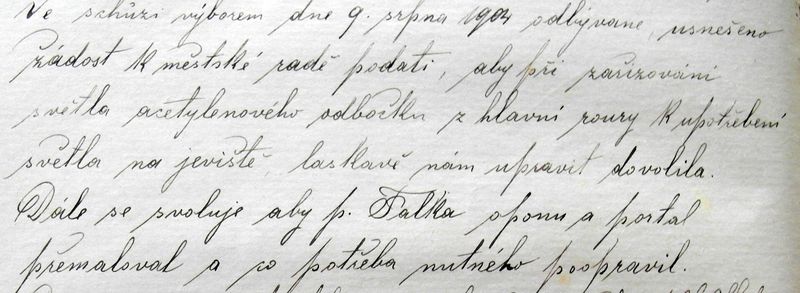 Ve schůzi výborem dne 9. srpna 1904 odbývané, usnešeno
žádost k městské radě podati, aby při zařizování
světla acetylenového odbočku z hlavní roury k upotřebení
světla na jeviště, laskavě nám upravit dovolila.
Dále se svoluje aby p. Falka oponu a portal
přemaloval a co potřeba nutného poopravil.